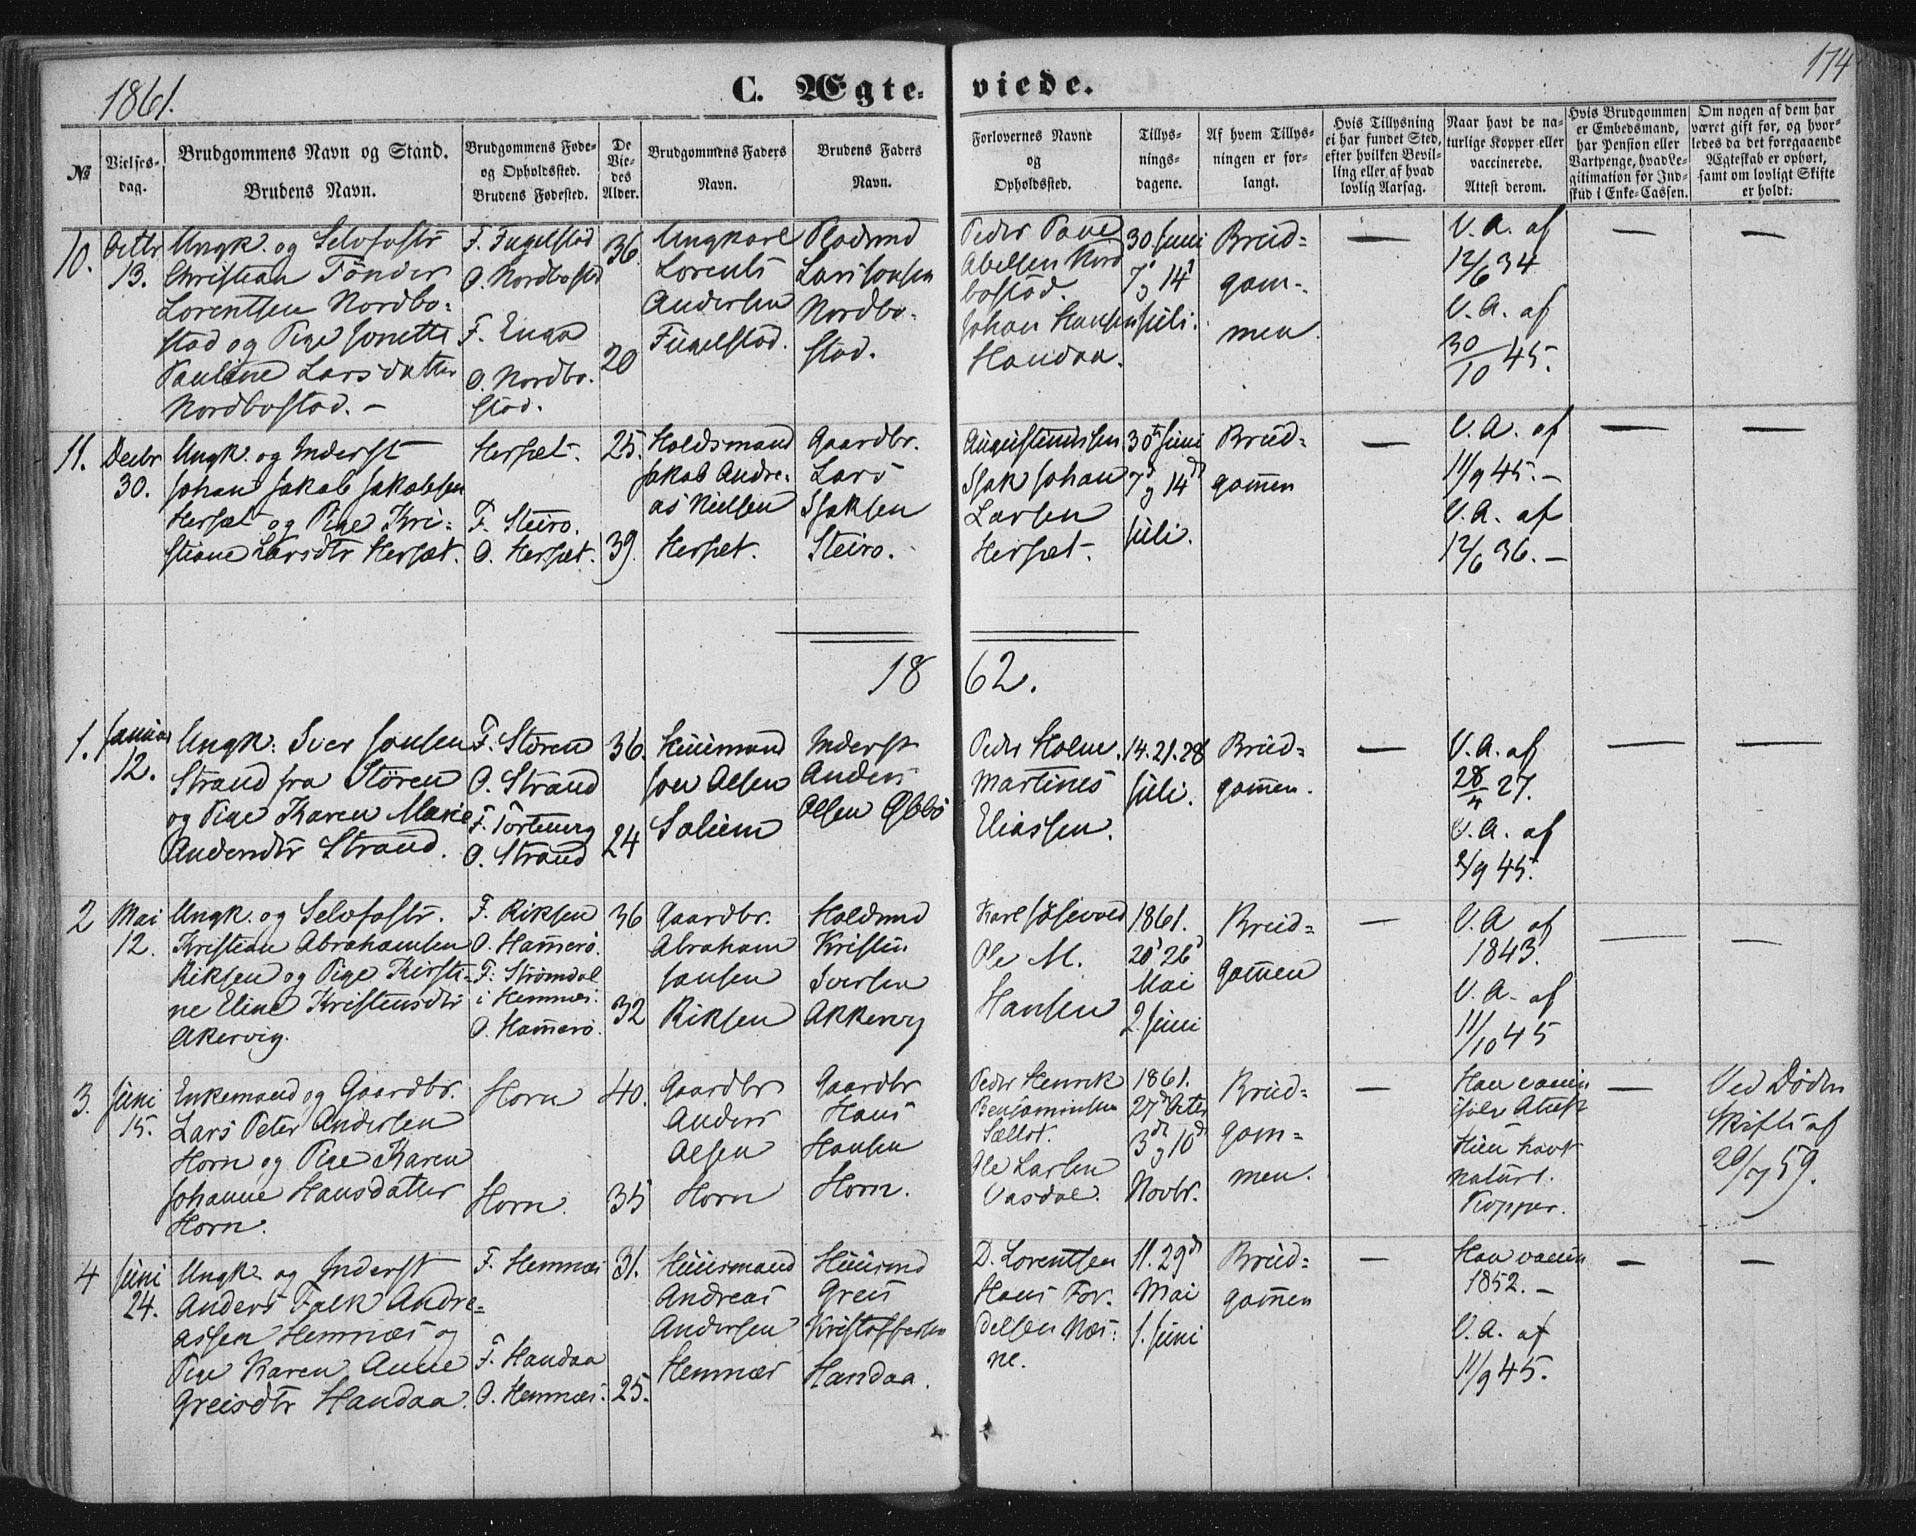 1861.
C. Ægte-
viede.
174
№
Vielses-
dag.
Brudgommens Navn og Stand.
Brudens Navn.
Brudgommens Føde-
og Opholdssted.
Brudens Fødested.
De
Vie-
des
Alder.
Brudgommens Faders
Navn.
Brudens Faders
Navn.
Forlovernes Navne
og
Opholdssted.
Tillys-
nings-
dagene.
Af hvem Tillys-
ningen er for-
langt.
Hvis Tillysning
ei har fundet Sted,
efter hvilken Bevil-
ling eller af hvad
lovlig Aarsag.
Naar havt de na-
turlige Kopper eller
vaccinerede.
Attest derom.
Hvis Brudgommen
er Embedsmand,
har Pension eller
Vartpenge, hvad Le-
gitimation for Ind-
skud i Enke-Cassen.
Om nogen af dem har
været gift før, og hvor-
ledes da det foregaaende
Ægteskab er ophørt,
samt om lovligt Skifte
er holdt.
10.
Octbr
13.
Ungk. og Selvfostr
Christian Tønder
Lorentsen Nordbo-
stad og Pige Jonette
Pauline Larsdatter
Nordbostad. –
F. Fugelstad
O. Nordbostad
F. Enga
O. Nordbo-
stad.
36.
20
Ungkarl
Lorents
Andersen
Fugelstad.
Lars Jonsen
Nordbo-
stad.
Peder Povel
Abelsen Nord
bostad.
Johan Hansen
Handaa.
30. Juni
7d og 14d
Juli.
Brud-
gom-
men.
—
V. A. af
12/6 34
V. A. af
30/10 45.
—
—
11.
Decbr
30.
Ungk. og Inderst
Johan Jakob Jakobsen
Herset og Pige Kri-
stiane Larsdtr Herset.
Herset.
F. Steiro.
O. Herset.
25.
39.
Holdsmand
Jakob Andre-
as Nielsen
Herset.
Gaardbr.
Lars
Isaksen
Steiro.
Augustinussen
Isak Johan
Larsen
Herset.
30te Juni
7d og 14d
Juli.
Brud-
gom̄en
—
V. A. af
11/9 45. –
V. A. af
12/6 36. –
—
—
1862.
1.
Januar
12.
Ungk. Iver Jonsen
Strand fra Støren
og Pige Karen Marie
Andersdtr Strand.
F. Støren
O. Strand
F. Tortenvig
O. Strand
36.
24
Huusmand
Jon Olsen
Soliem
Inderst
Anders
Olsen
Peder Holm.
Martines
Eliassen.
14. 21. 28
Juli.
Brud-
gom̄en.
—
V. A. af
28/4 27.
V. A. af
2/9 45.
—
—
2
Mai
12.
Ungk. og Selvfostr.
Kristian Abrahamsen
Riksen og Pige Kirsti-
ne Eline Kristensdtr
Akervig.
F. Riksen
O. Ham̄erø.
F. Strømdal
i Hemnæs.
O. Ham̄erø.
36
32
Gaardbr.
Abraham
Jansen
Riksen
Holdsmd
Kristen
Iversen
Akkervig
Karl
Ole M.
Hansen
1861.
20d 26d
Mai
2. Juni
Brud-
gom̄en
—
V. A af
1843.
V. A. af
11/10 45
—
—
3.
Juni
15.
Enkemand og Gaardbr.
Lars Peter Andersen
Horn og Pige Karen
Johanne Hansdatter
Horn.
Horn
Horn.
40.
35
Gaardbr
Anders
Olsen
Horn
Gaardbr
Hans
Hansen
Horn.
Peder Henrik
Benjaminsen
Ole Larsen
Vasdal.
1861.
27d Octbr
3d og 10d
Novbr.
Brud-
gom-
men.
—
Han vaccin
ifølge Attest
Hun havt
naturl.
Kopper.
—
Ved Døden
Skifte af
20/7 59.
4
Juni
24.
Ungk. og Inderst
Anders Falk Andre-
assen Hemnæs og
Pige Karen Anne
Greisdtr Handaa.
F. Hemnæs
F. Handaa
O. Hemnæs.
31.
25.
Huusmand
Andreas
Andersen
Hemnæs
Huusmd
Greis
Kristoffersen
Handaa.
D. Lorentsen
Hans For-
delsen Næs-
ne.
11. 29d
Mai
1. Juni
Brud-
gom̄en
—
Han vaccin
1852. –
V. A. af
11/9 45.
—
—